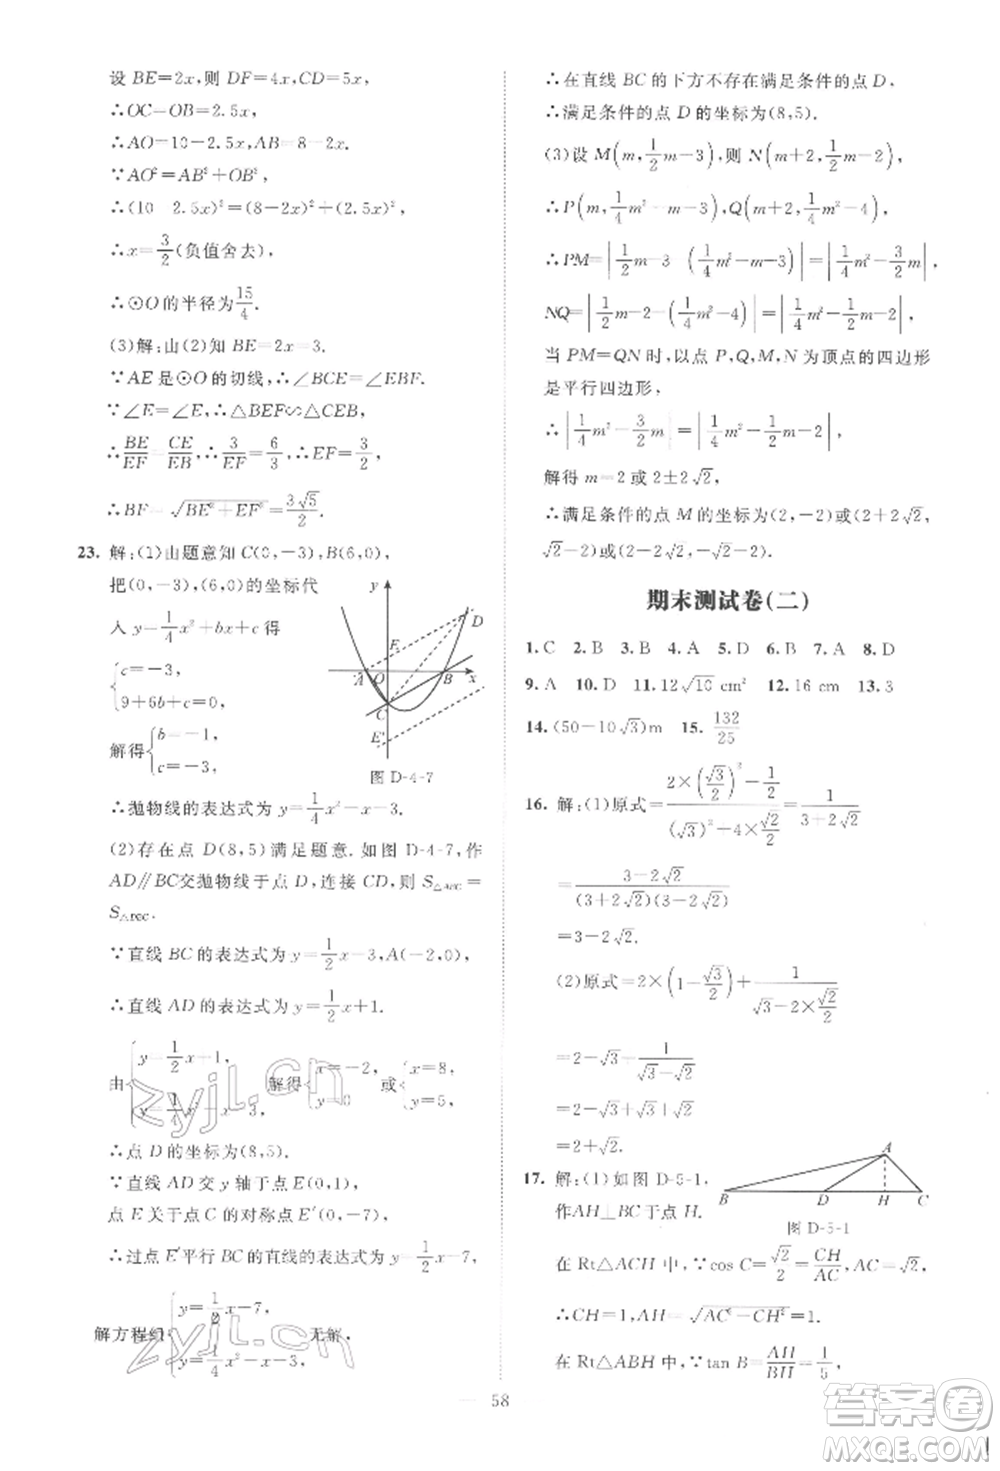 设 BE=2x,则 DF=4x,CD=5x,
∴OC=OB=2.5x,
∴AO=10-2.5x,AB=8-2x.
∵AO²=AB²+OB²,
∴(10-2.5x)²=(8-2x)²+(2.5x)²,
∴x=3/2(负值舍去),
∴⊙O的半径为15/4.
(3)解:由(2)知 BE=2x=3.
∵AE是⊙O的切线,∴∠BCE=∠EBF.
∵∠E=∠E,∴△BEF∽△CEB,
∴BE/EF=CE/EB,∴3/EF=6/3,∴EF=3/2,
∴BF=√(BE²+EF²)=3√5/2.
23. 解:(1)由题意知 C(0,-3),B(6,0),
把(0,-3),(6,0)的坐标代
入 y=1/4x²+bx+c 得
{c=-3,
9+6b+c=0,
解得{b=-1,
c=-3,
y D E A O B x C E'
图 D-4-7
∴抛物线的表达式为 y=1/4x²-x-3.
(2)存在点 D(8,5)满足题意.如图 D-4-7,作
AD∥BC交抛物线于点 D,连接 CD,则 S△ABC=
S△DBC.
∵直线 BC 的表达式为 y=1/2x-3,A(-2,0),
∴直线 AD 的表达式为 y=1/2x+1.
由{y=1/2x+1,
y=1/4x²-x-3, 解得{x=-2,
y=0 或{x=8,
y=5,
∴点 D 的坐标为(8,5).
∵直线 AD 交 y 轴于点 E(0,1),
点 E 关于点 C 的对称点 E'(0,-7),
∴过点 E'平行 BC 的直线的表达式为 y=1/2x-7,
解方程组{y=1/2x-7,
y=1/4x²-x-3, 无解,
∴在直线 BC 的下方不存在满足条件的点 D,
∴满足条件的点 D 的坐标为(8,5).
(3)设 M(m,1/2m-3),则 N(m+2,1/2m-2),
∴P(m,1/4m²-m-3),Q(m+2,1/4m²-4),
∴PM=|1/2m-3-(1/4m²-m-3)|=|1/4m²-3/2m|,
NQ=|1/2m-2-(1/4m²-4)|=|1/4m²-1/2m-2|,
当 PM=QN 时,以点 P,Q,M,N 为顶点的四边形
是平行四边形,
∴|1/4m²-3/2m|=|1/4m²-1/2m-2|,
解得 m=2或2±2√2,
∴满足条件的点 M 的坐标为(2,-2)或(2+2√2,
√2-2)或(2-2√2,-√2-2).
期末测试卷(二)
1.C 2.B 3.B 4.A 5.D 6.B 7.A 8.D
9.A 10.D 11.12√10 cm² 12.16 cm 13.3
14.(50-10√3)m 15.132/25
16. 解:(1)原式=(2×(√3/2)²-1/2)/((√3)²+4×√2/2)=1/(3+2√2)
=(3-2√2)/((3+2√2)(3-2√2))
=3-2√2.
(2)原式=2×(1-√3/2)+1/(√3-2×√2/2)
=2-√3+1/(√3-√2)
=2-√3+√3+√2
=2+√2.
17. 解:(1)如图 D-5-1,
作AH⊥BC于点 H.
A B D H C
图 D-5-1
在 Rt△ACH 中,∵cos C=√2/2=CH/AC,AC=√2,
∴CH=1,AH=√(AC²-CH²)=1.
在 Rt△ABH 中,∵tan B=AH/BH=1/5,
58
zyjl.cn
zyjl.cn
答案圈
MXQE.COM